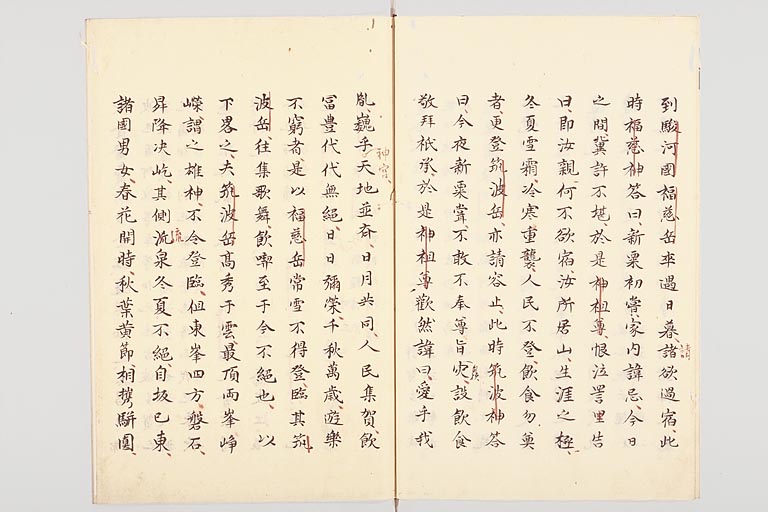 到駿河國福慈岳卒遇日暮、諸欲過宿、此
時福慈神答曰、新粟初嘗、家内諱忌、今日
之間、冀許不堪、於是神祖尊、恨泣詈里告
曰、即汝親、何不欲宿、汝所居山、生涯之極、
冬夏雪霜、冷寒重襲、人民不登、飲食勿奠
者、更登筑波岳、亦請容止、此時筑波神答
曰、今夜新粟嘗、不敢不奉尊旨、爰設飲食
敬拜祗承、於是神祖尊、歡然諱曰、愛乎我
胤、巍乎神宮、天地並斉、日月共同、人民集賀、飲
冨豊、代代無絶、日日彌榮、千秋萬歳、遊樂
不窮者、是以福慈岳常雪不得登臨、其筑
波岳、往集歌舞、飲喫至于今不絶也、以
下畧之、夫筑波岳、髙秀于雲、最頂両峯崢
嶸、謂之雄神、不令登臨、但東峯四方磐石、
昇降决屹、其側流泉冬夏不絶、自坂已東、
諸國男女、春花開時、秋葉黄節、相携駢闐、